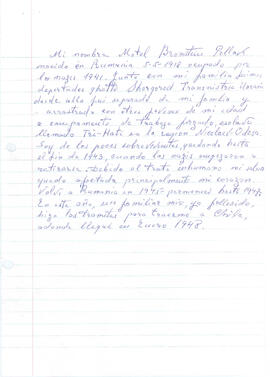 Mi nombre Motel Bronstein Pollak
nacido en Rumania 5-5-1918 ocupado por
los nazis 1941. Junto con mi familia fuimos
deportados ghetto Shargorod Transnistria Ucrania
desde allá fui separado de mi familia y
arrastrado con otros jóvenes de mi edad
a campamento de trabajo forzado, esclavo
llamado Tri-Hati en la region Nicolaev-Odesa.
Soy de los pocos sobrevivientes, quedando hasta
el fin de 1943, cuando los nazis empezaron a
retirarse. Debido al trato inhumano mi salud
quedo afectada principalmente mi corazon.
Volvi a Rumania en 1945 - permaneci hasta 1947.
En este año, un familiar mio, ya fallecido,
hizo los tramites para traerme a Chile,
adonde llegué en Enero 1948.